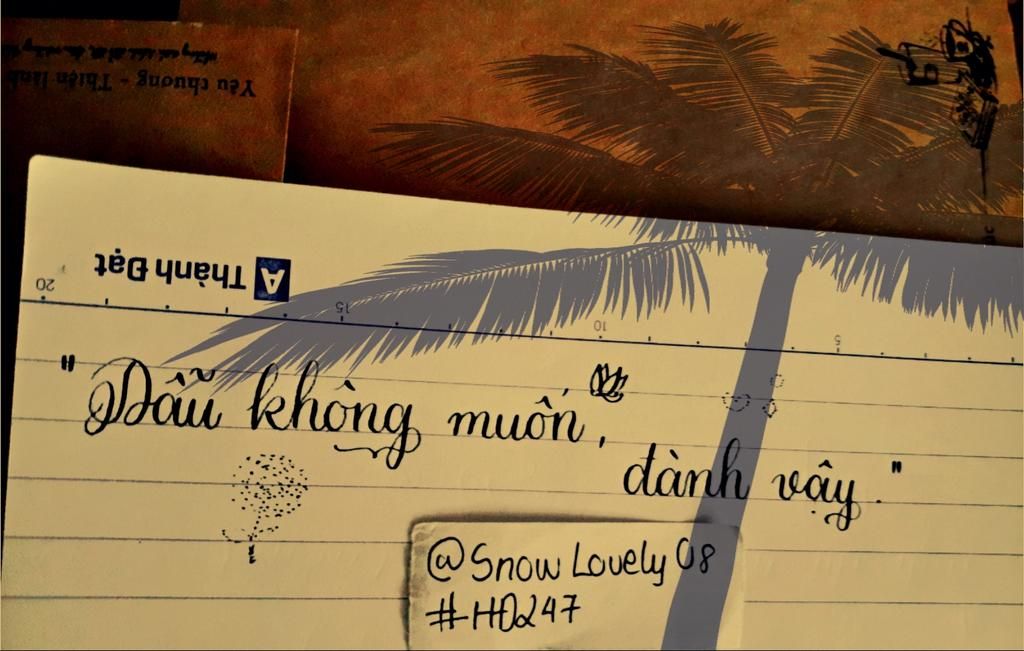 Yêu thương - Thiện lành
A Thành Đạt
20
15
10
5
" Dẫu không muốn,
đành vậy."
@Snow Lovely 08
#HD247